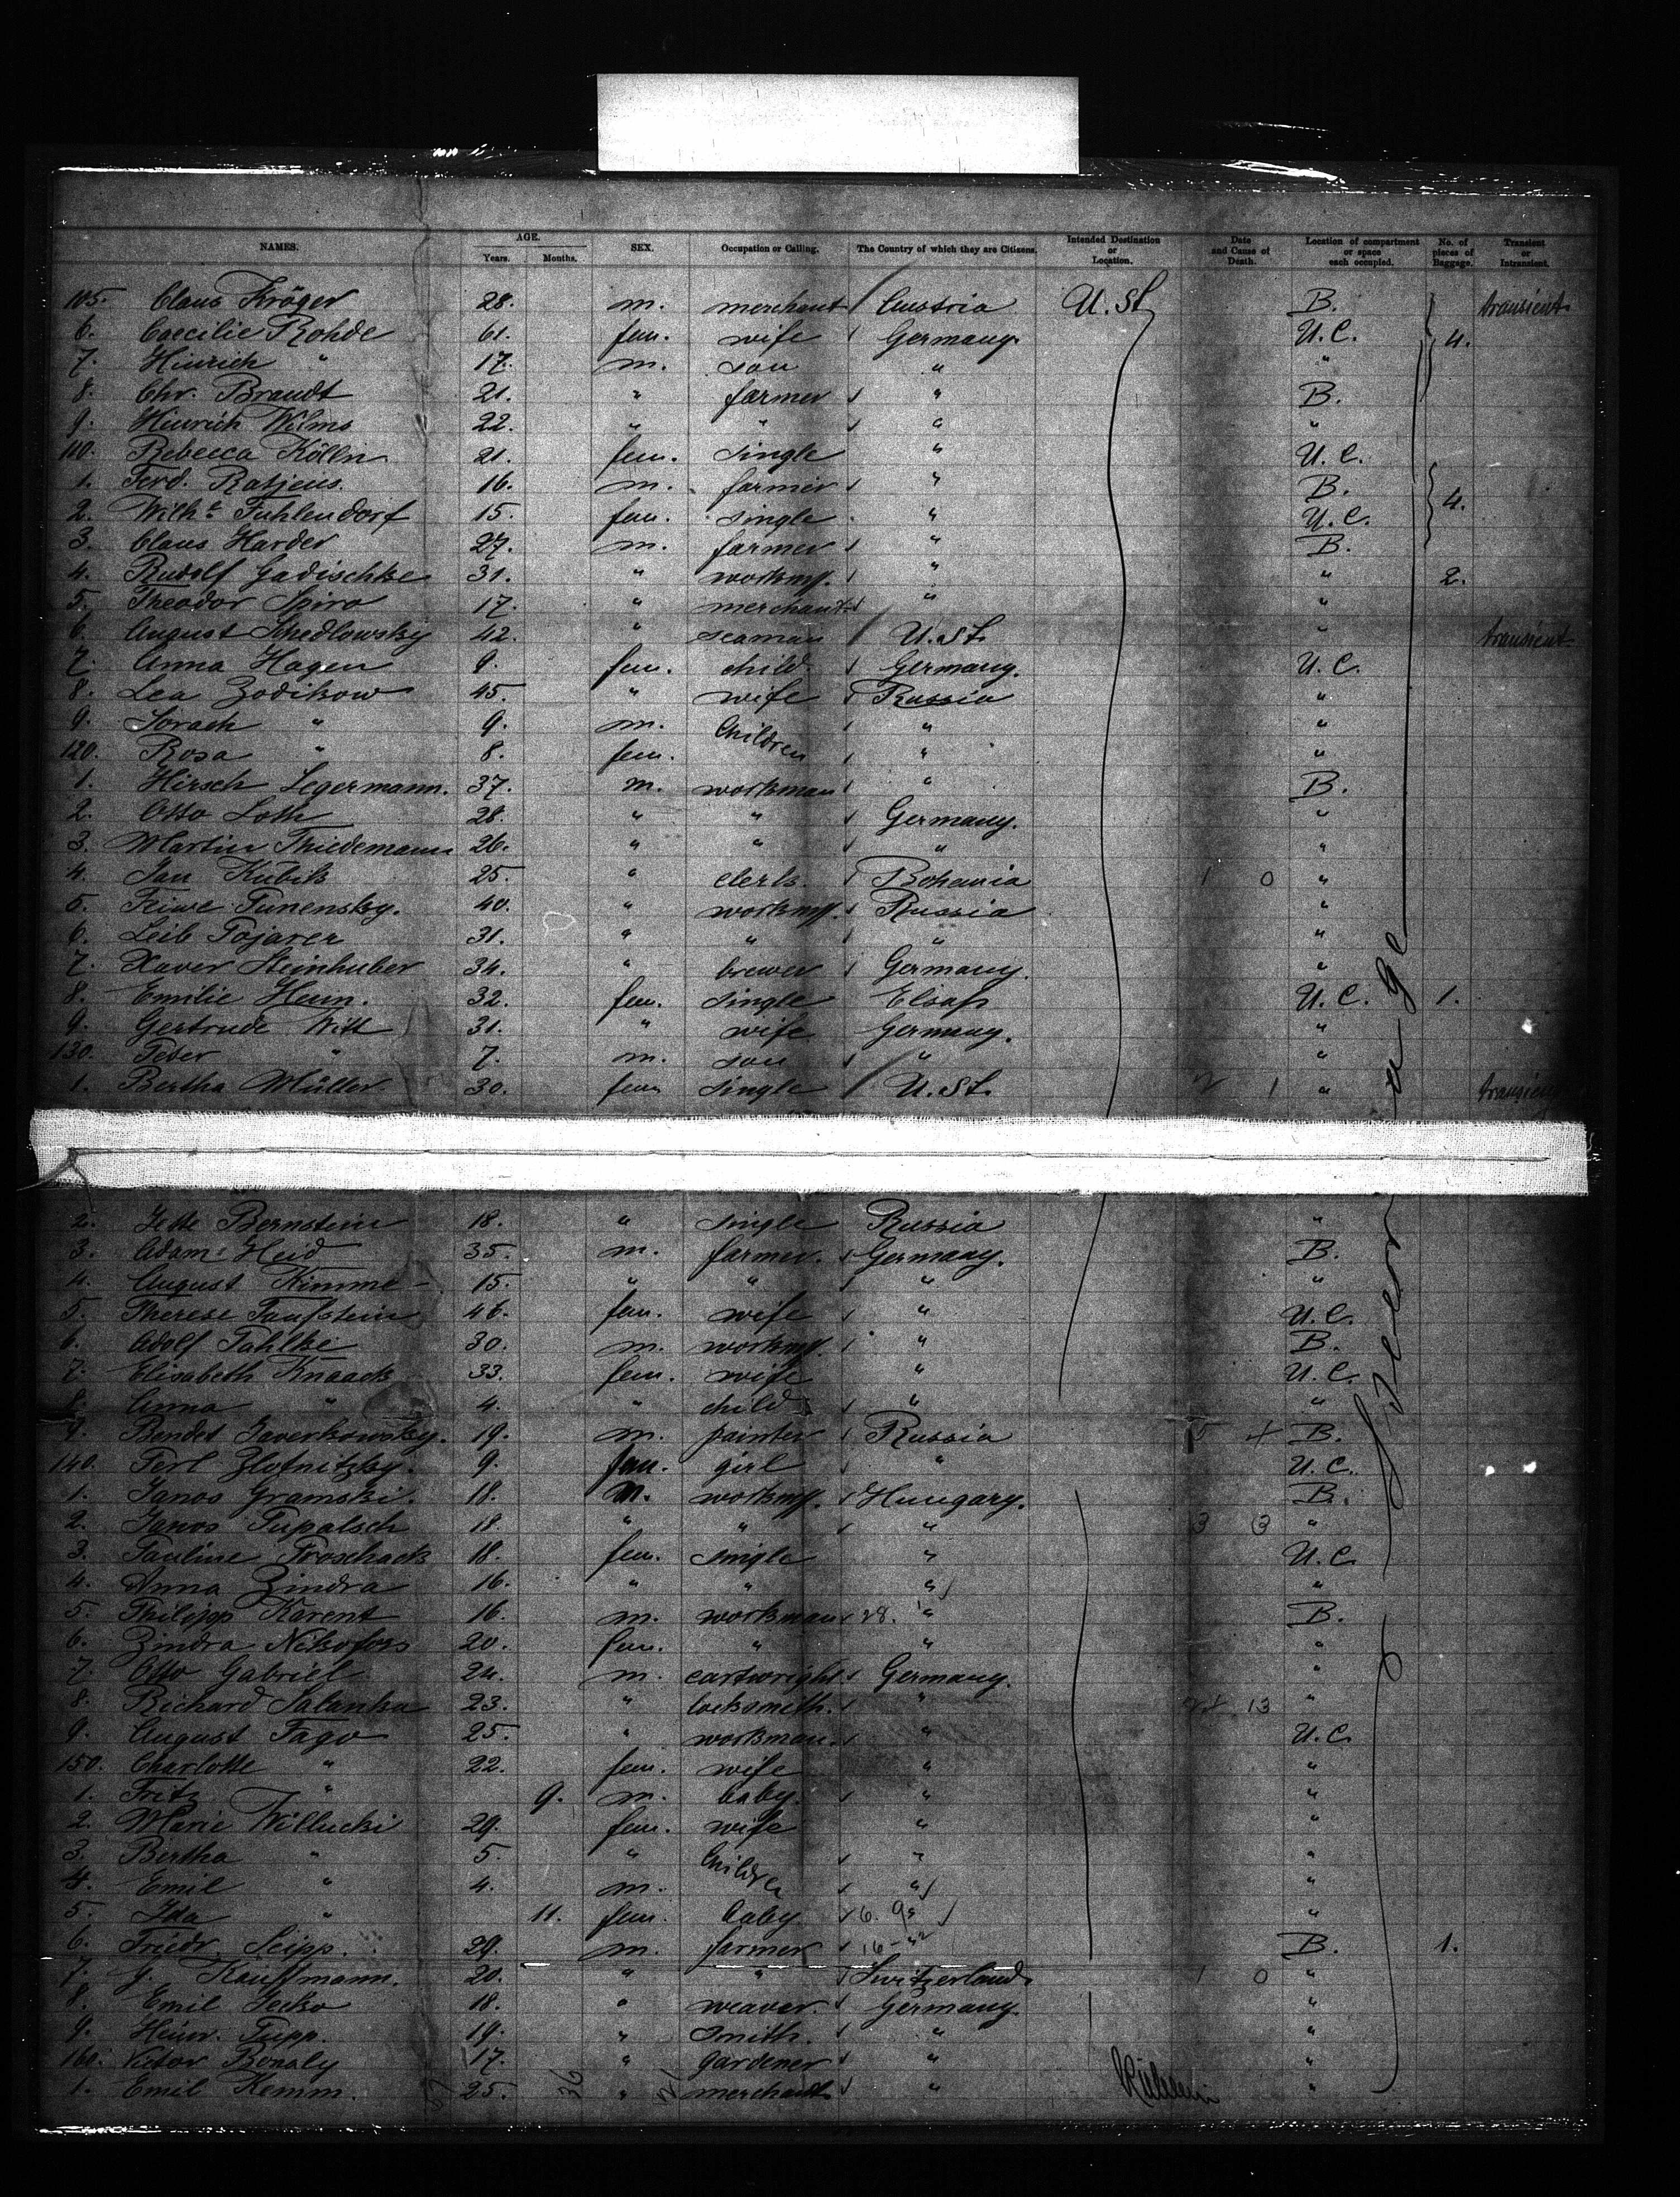 NAMES. AGE. Years. Months. SEX. Occupation or Calling. The Country of which they are Citizens. Intended Destination or Location. Date and Cause of Death. Location of compartment or space each occupied. No. of pieces of Baggage. Transient or Intransient.
105. Claus Kröger 28. m. merchant Austria U. St. B. transient
6. Caecilie Rohde 61. fem. wife Germany. U. C. 4.
7. Hinrich " 17. m. son " "
8. Chr. Brandt 21. " farmer " B.
9. Hinrich Wilms 22. " " " "
110. Rebecca Kölln 21. fem. single " U. C.
1. Ferd. Ratjens. 16. m. farmer " B.
2. Wilh. Fuhlendorf 15. fem. single " U. C. 4.
3. Claus Harder 27. m. farmer " B.
4. Rudolf Gadischke 31. " workm. " " 2.
5. Theodor Spiro 17. " merchant " "
6. August Schedlowsky 42. " seaman U. St. " transient
7. Anna Hagen 9. fem. child Germany. U. C.
8. Lea Zodikow 45. " wife Russia "
9. Sorach " 9. m. Children " "
120. Rosa " 8. fem. " "
1. Hirsch Legermann. 37. m. workman " B.
2. Otto Loth 28. " " Germany. "
3. Martin Thiedemann 26. " " " "
4. Jan Kubik 25. " clerk. Bohemia 1 0 "
5. Feiwe Tunensky. 40. " workm. Russia "
6. Leib Pojarer 31. " " " "
7. Xaver Steinhuber 34. " brewer Germany. "
8. Emilie Heun. 32. fem. single Elsaß U. C. 1.
9. Gertrude Witt 31. " wife Germany. "
130. Peter " 7. m. son " "
1. Bertha Müller 30. fem single U. St. 2 1 " transient
2. Jette Bernstein 18. " single Russia "
3. Adam Heid 35. m. farmer. Germany. B.
4. August Kimme 15. " " " "
5. Therese Taufstein 46. fem. wife " U. C.
6. Adolf Pahlke 30. m. workm. " B.
7. Elisabeth Knaack 33. fem. wife " U. C.
8. Anna " 4. " child " "
9. Bendet Javerkowsky. 19. m. painter Russia 5 4 B.
140. Perl Zlotnitzky. 9. fem. girl " U. C.
1. Janos Gramski. 18. m. workm. Hungary. B.
2. Janos Pupalsch 18. " " " 3 3 "
3. Pauline Proschack 18. fem. single " U. C.
4. Anna Zindra 16. " " " "
5. Philipp Karent 16. m. workman 28. " B.
6. Zindra Nikofors 20. fem. " " "
7. Otto Gabriel 24. m. cartwright Germany. "
8. Richard Salanka 23. " locksmith. " 13 "
9. August Fago 25. " workman. " U. C.
150. Charlotte " 22. fem. wife " "
1. Fritz " 9. m. baby. " "
2. Marie Willucki 29. fem. wife " "
3. Bertha " 5. " Children " "
4. Emil " 4. m. " "
5. Ida " 11. fem. baby "
6. Friedr. Seipp. 29. m. farmer B. 1.
7. J. Kauffmann. 20. " " Switzerland. 1 0 "
8. Emil Jecko 18. " weaver. Germany. "
9. Heinr. Pupp. 19. " smith. " "
160. Victor Bonaly 17. " gardener " "
1. Emil Kemm. 25. " merchant " "
Steerage
36 21